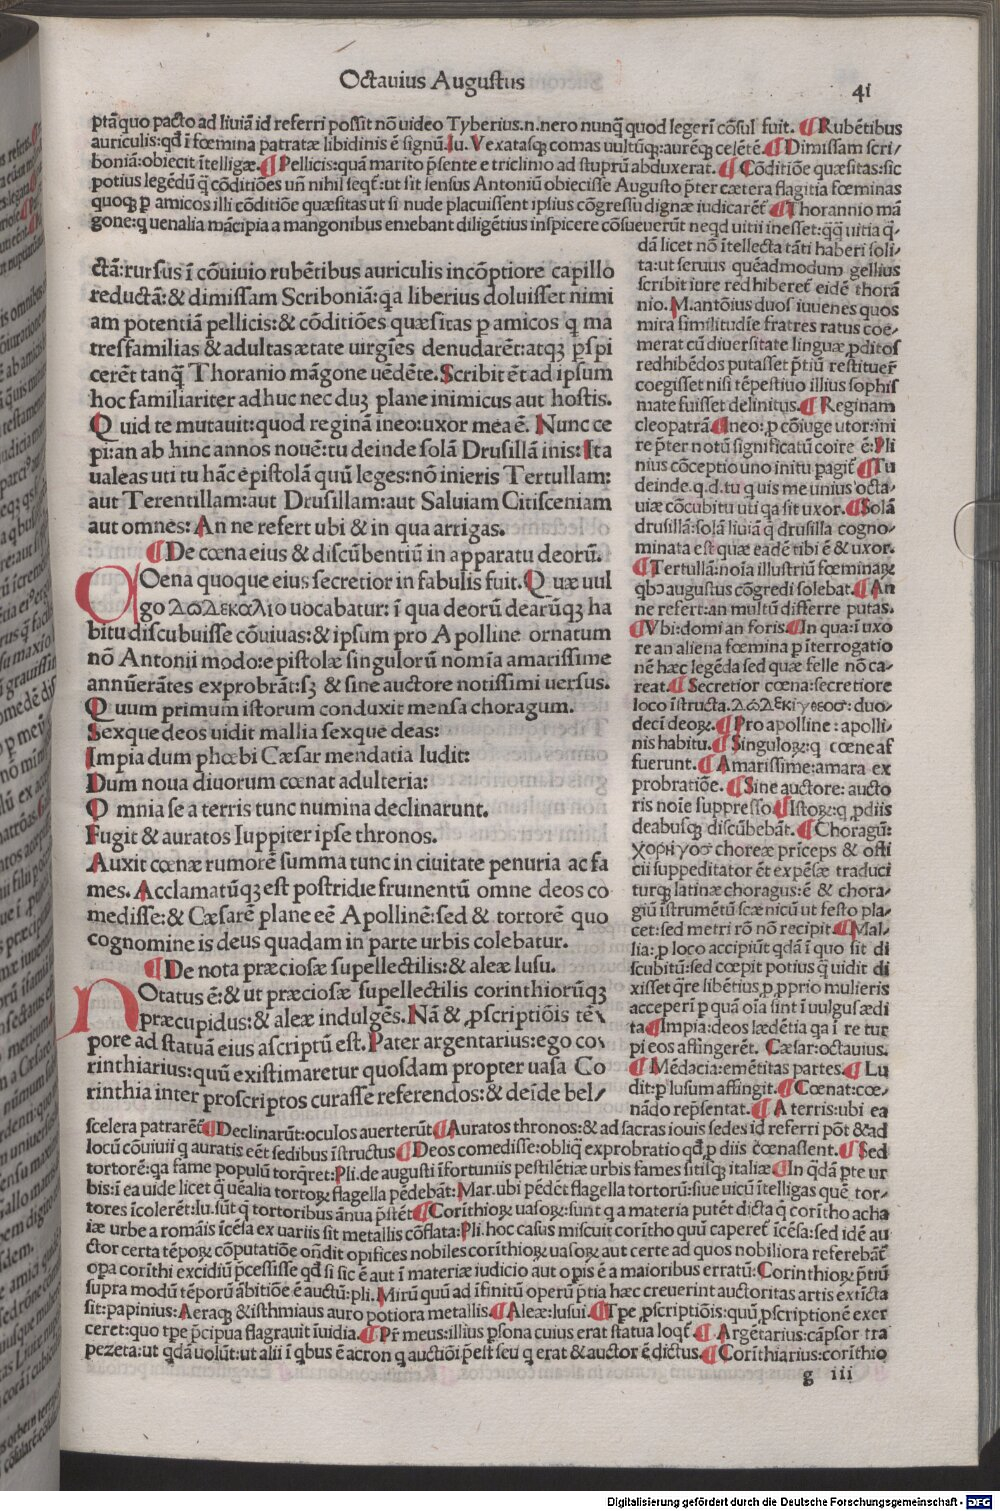 Octauius Augustus
41
ptã quo pacto ad liuiã id referri possit nõ uideo Tyberius.n.nero nunq̃ quod legeri cõsul fuit. ¶ Rubẽtibus
auriculis:qđ ĩ fœmina p̃atratæ libidinis ẽ signũ Iu. Vexatasq; comas uultũq;:aurẽq; celẽtẽ. ¶ Dimissam scri/
boniã:obiecit ĩtelligæ. ¶ Pellicis:quã marito p̃sente e triclinio ad stuprũ abduxerat. ¶ Cõditiõe quæsitas:sic
potius legẽdũ q̃ cõditiões un̄ nihil seqt̃:ut sit sensus Antoniũ obiecisse Augusto p̃ter cætera flagitia fœminas
quoq; p amicos illi cõditiõe quæsitas ut si nude placuissent ipsius cõgressu dignæ iudicarẽt ¶ Thorannio mã
gone:q uenalia mãcipia a mangonibus emebant diligẽtius inspicere cõsueuerũt neqd uitii inesset:qq̃ uitia q̃/
ctã:rursus ĩ cõuiuio rubẽtibus auriculis incõptiore capillo
reductã:& dimissam Scriboniã:qa liberius doluisset nimi
am potentiã pellicis:& cõditiões quæsitas p amicos q ma
tresfamilias & adultas ætate uirgĩes denudarẽt:atq; pspi
cerẽt tanq̃ Thoranio mãgone uẽdẽte. Scribit ẽt ad ipsum
hoc familiariter adhuc nec duʒ plane inimicus aut hostis.
Quid te mutauit:quod reginã ineo:uxor mea ẽ. Nunc ce
pi:an ab hinc annos nouẽ:tu deinde solã Drusillã inis: Ita
ualeas uti tu hãc epistolã quũ leges:nõ inieris Tertullam:
aut Terentillam:aut Drusillam:aut Saluiam Citisceniam
aut omnes: An ne refert ubi & in qua arrigas.
¶ De cœna eius & discũbentiũ in apparatu deorũ.
COena quoque eius secretior in fabulis fuit. Quæ uul
go ΔωΔεκαλιο uocabatur: ĩ qua deorũ dearũq; ha
bitu discubuisse cõuiuas:& ipsum pro Apolline ornatum
nõ Antonii modo:epistolæ singulorũ nomĩa amarissime
annũerãtes exprobrãt:sʒ & sine auctore notissimi uersus.
Quum primum istorum conduxit mensa choragum.
Sexque deos uidit mallia sexque deas:
Impia dum phœbi Cæsar mendatia ludit:
Dum noua diuorum cœnat adulteria:
Omnia se a terris tunc numina declinarunt.
Fugit & auratos Iuppiter ipse thronos.
Auxit cœnæ rumorẽ summa tunc in ciuitate penuria ac fa
mes. Acclamatũq; est postridie fruinentũ omne deos co
medisse:& Cæsarẽ plane eẽ Apollinẽ:sed & tortorẽ quo
cognomine is deus quadam in parte urbis colebatur.
¶ De nota præciosæ supellectilis:& aleæ lusu.
NOtatus ẽ:& ut præciosæ supellectilis corinthiorũq;
præcupidus:& aleæ indulgẽs. Nã & pscriptiõis tẽ
pore ad statuã eius ascriptũ est. Pater argentarius:ego co/
rinthiarius:quũ existimaretur quosdam propter uasa Co
rinthia inter proscriptos curasse referendos:& deĩde bel/
dã licet nõ ĩtellecta tãti haberi soli/
ta:ut seruus quẽadmodum gellius
scribit iure redhiberet̃ eidẽ thorã
nio. M.antõius duos iuuenes quos
mira similitudĩe fratres ratus coe/
merat cũ diuersitate linguæ pditos
redhibẽdos putasset p̃tiũ restituer̃
coegisset nisi tẽpestiuo illius sophis
mate fuisset delinitus. ¶ Reginam
cleopatrã. ¶ Ineo:p cõiuge utor:ini
re p̃ter notũ significatũ coire ẽ: Pli
nius cõceptio uno initu pagit̃ ¶ Tu
deinde.q.d.tu quis me unius octa/
uiæ cõcubitu uti qa sit uxor. ¶ Solã
drusillã:solã liuiã q̃ drusilla cogno/
minata est quæ eadẽ tibi ẽ & uxor.
¶ Tertullã:noĩa illustriũ fœminaꝝ
qbɔ augustus cõgredi solebat. ¶ An
ne refert:an multũ differre putas.
¶ Vbi:domi an foris. ¶ In qua:ĩ uxo
re an aliena fœmina p ĩterrogatio
nẽ hæc legẽda sed quæ felle nõ ca/
reat. ¶ Secretior cœna:secretiore
loco ĩstructa.ΔωΔεκιγεοσ: duo/
deci deoꝝ. ¶ Pro apolline:apolli/
nis habitu. ¶ Singuloꝝ:q cœne af
fuerunt. ¶ Amarissime:amara ex
probratiõe. ¶ Sine auctore: aucto
ris noĩe suppresso ¶ Istoꝝ:q pdiis
deabusq; discũbebãt. ¶ Choragũ:
χορηγοσ choreæ prĩceps & osti
cii suppeditator ẽt expẽsæ traduci
turq; latinæ choragus:ẽ & chora/
giũ ĩstrumẽtũ scænicũ ut festo pla/
cet:sed metri rõ nõ recipit. ¶ Mal/
lia:p loco accipiũt qdã ĩ quo sit di
scubitũ:sed cœpit potius q̃ uidit di
xisset qre libẽtius p pprio mulieris
acceperĩ p quã oĩa sint ĩ uulgus ædi
ta ¶ Impia:deos lædẽtia qa ĩ re tur
pi eos affingerẽt. Cæsar:octauius.
¶ Mẽdacia:emẽtitas partes. ¶ Lu
dit:p lusum affingit. ¶ Cœnat:cœ/
nãdo rep̃sentat. ¶ A terris:ubi ea
scelera patrarẽt̃ ¶ Declinarũt:oculos auerterũt ¶ Auratos thronos:& ad sacras iouis sedes id referri põt & ad
locũ cõuiuii q auratis eẽt sedibus ĩstructus ¶ Deos comedisse:obliq̃ exprobratio qđ p diis cœnassent. ¶ Sed
tortorẽ:qa fame populũ torqret: Pli.de augusti ĩfortuniis pestilẽtiæ urbis fames sitisq; italiæ ¶ In qdã pte ur
bis:ĩ ea uide licet q uẽalia tortoꝝ flagella pẽdebãt: Mar.ubi pẽdẽt flagella tortorũ:siue uicũ ĩtelligas quẽ tor/
tores ĩcolerẽt:Iu.sũt q tortoribus ãnua p̃stẽt ¶ Corĩthioꝝ uasoꝝ:sunt q a materia putẽt dicta q corĩtho acha
iæ urbe a romãis ĩcẽsa ex uariis sit metallis cõflata: Pli.hoc casus miscuit corĩtho quũ caperet̃ ĩcẽsa:sed idẽ au
ctor certa tẽpoꝝ cõputatiõe oñdit opifices nobiles corĩthioꝝ uasoꝝ aut certe ad quos nobiliora referebãt̃
opa corĩthi excidiũ p̃cessisse qđ si sic ẽ aut ĩ materiæ iudicio aut opis ẽ a maioribus erratũ: Corinthioꝝ p̃tiũ
supra modũ tẽporũ ãbitiõe ẽ auctũ:pli. Mirũ quũ ad ĩfinitũ operũ p̃tia hæc creuerint auctoritas artis extĩcta
sit:papinius: Aeraq; & isthmiaus auro potiora metallis. ¶ Aleæ:lusui. ¶ Tpe pscriptiõis:quũ pscriptionẽ exer
ceret:quo tpe p̃cipua flagrauit ĩuidia. ¶ Pr̃ meus:illius psona cuius erat statua loqt̃ ¶ Argẽtarius:cãpsor tra
pezeta:ut qdã uolũt:ut alii ĩ qbus ẽ acron q auctiõi p̃est seu q erat & auctor ẽ dictus. ¶ Corĩthiarius:corĩthio
g iii
Digitalisierung gefördert durch die Deutsche Forschungsgemeinschaft - DFG